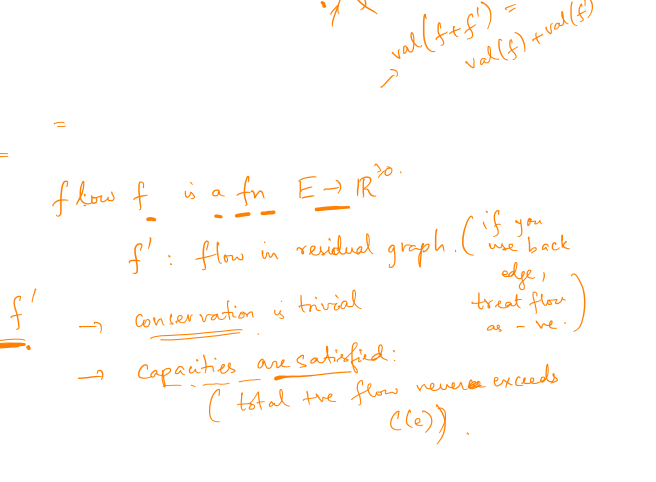 val(f+f') =
val(f) + val(f')
=
=
flow f is a fn E → ℝ^≥0.
f' : flow in residual graph. (if you
use back
edge,
treat flow
as -ve.)
f'
→ conservation is trivial
→ Capacities are satisfied:
( total +ve flow never exceeds
C(e)) .